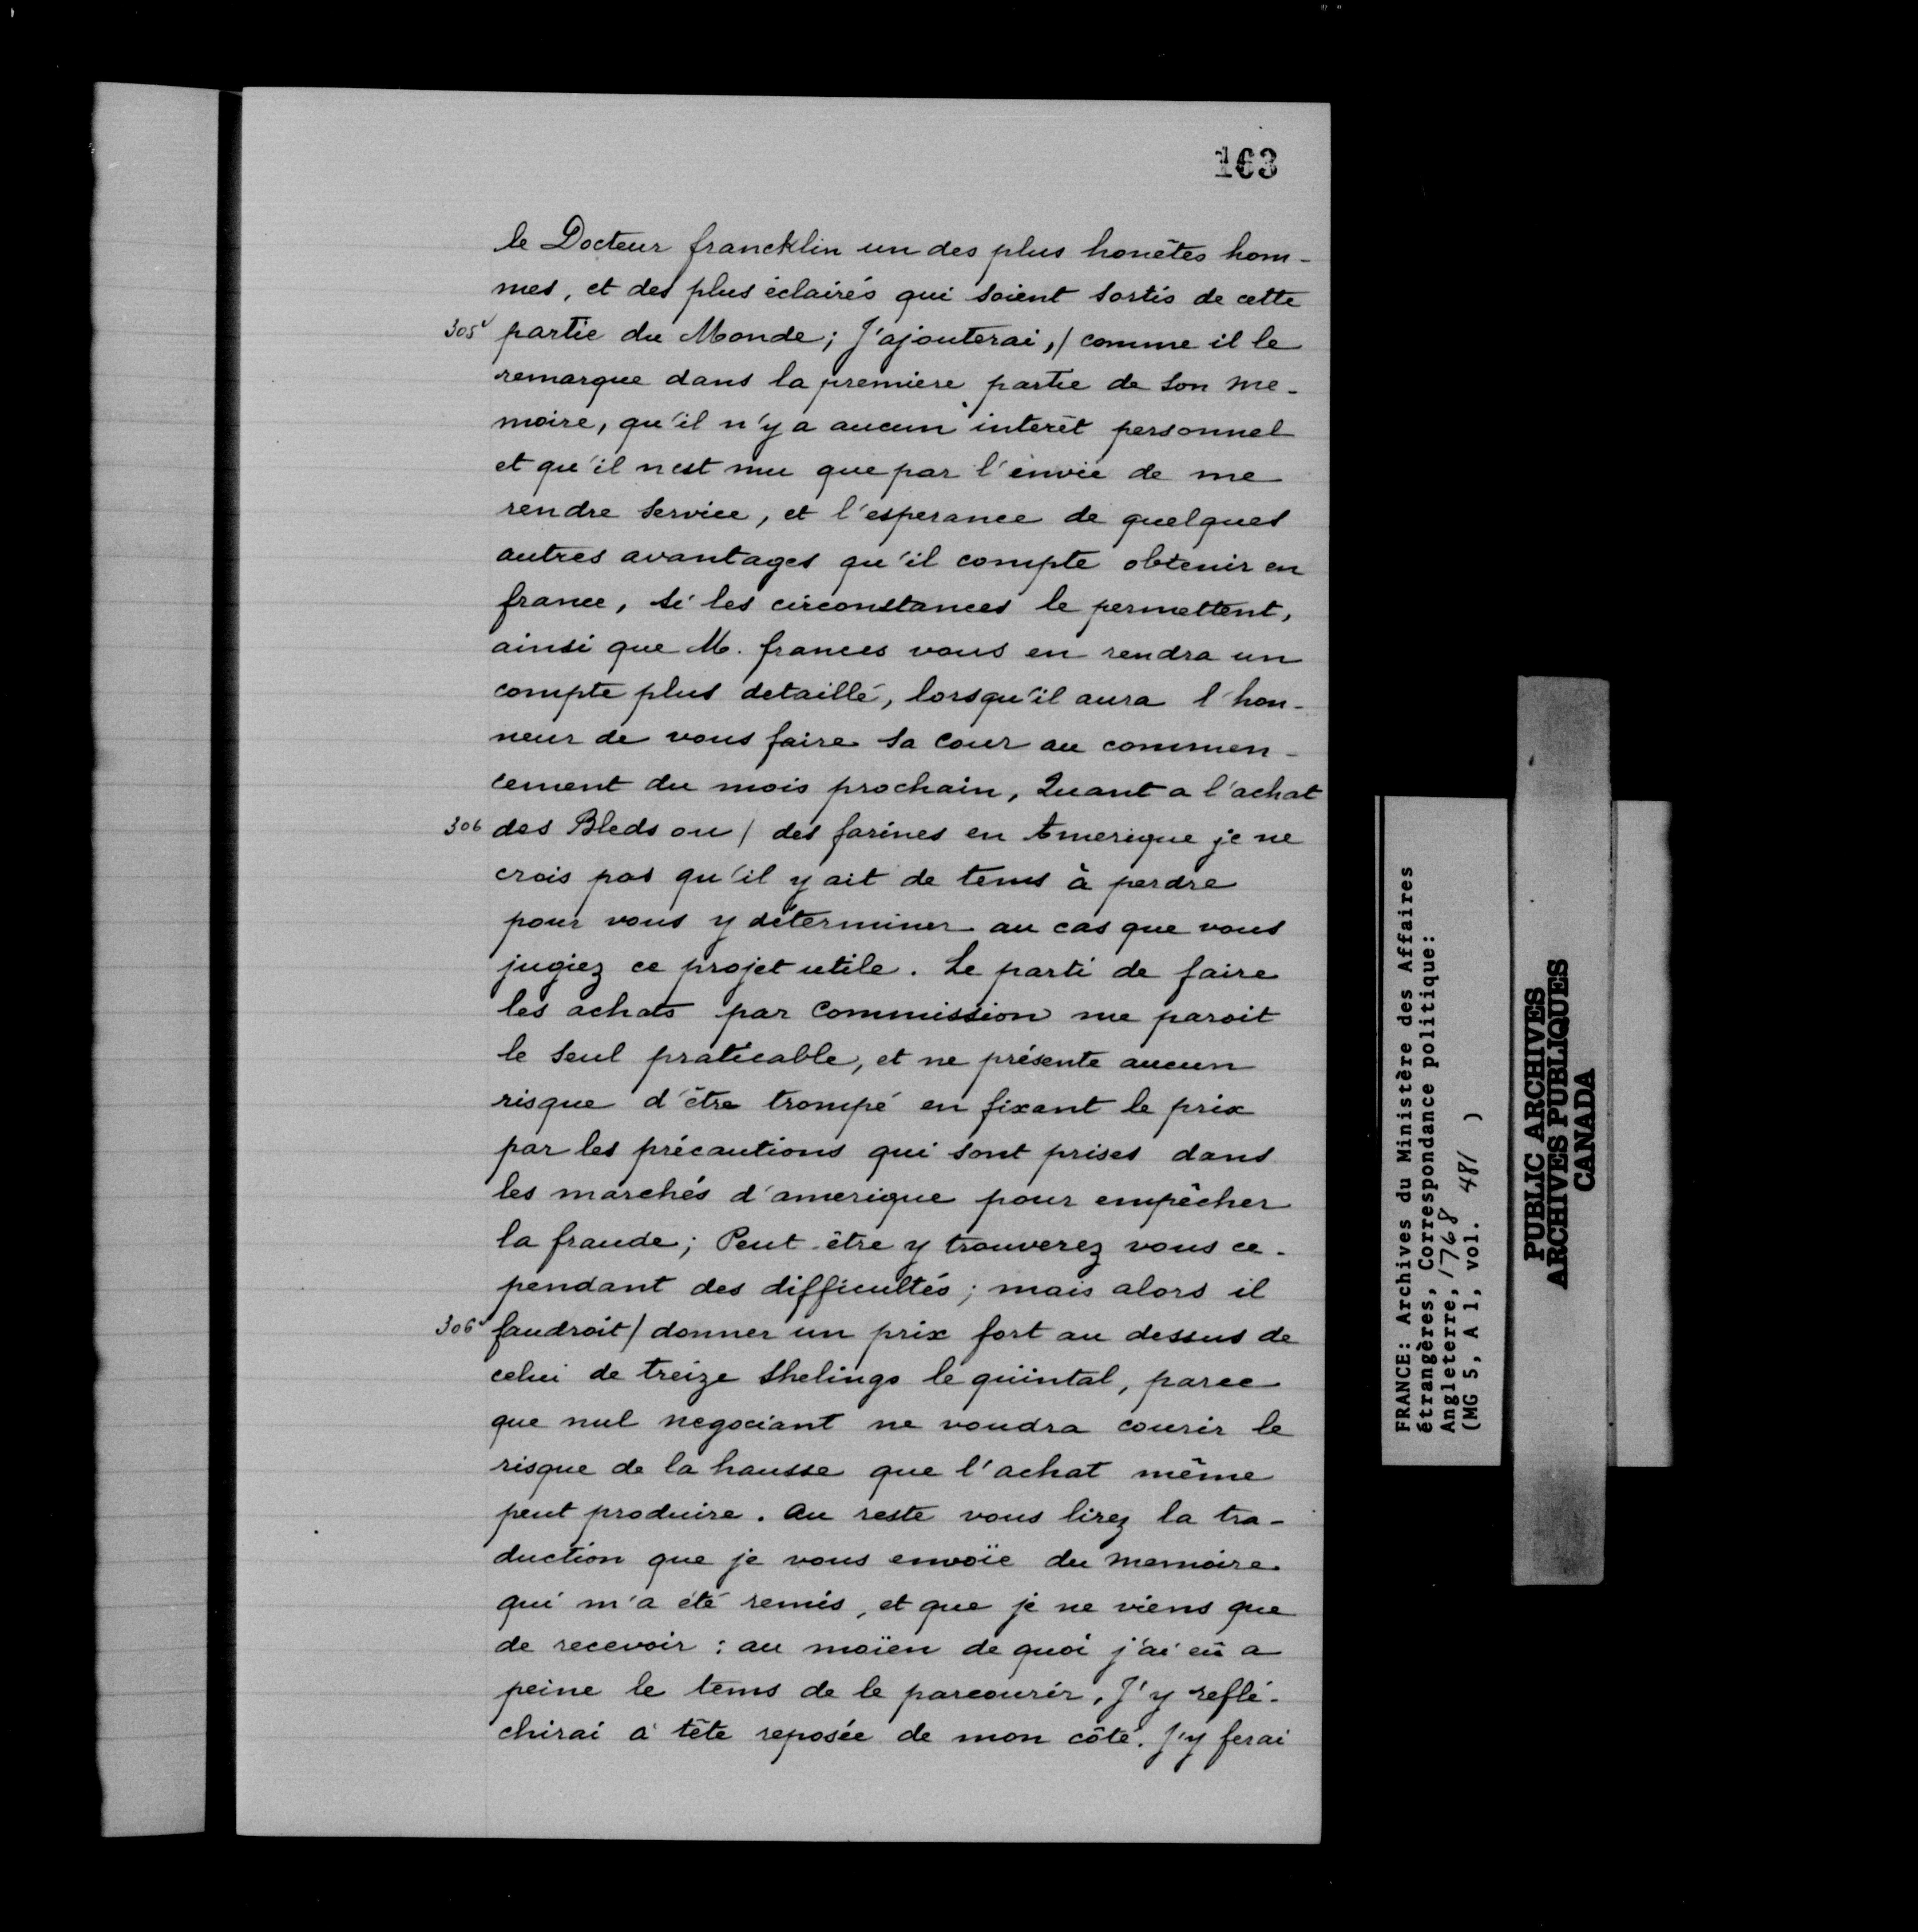 163
le Docteur francklin un des plus honêtes hom-
mes, et des plus éclairés qui soient sortis de cette
305v partie du Monde; J'ajouterai,/ comme il le
remarque dans la premiere partie de son me-
moire, qu'il n'y a aucun interêt personnel
et qu'il n'est mu que par l'envie de me
rendre service, et l'esperance de quelques
autres avantages qu'il compte obtenir en
france, si les circonstances le permettent,
ainsi que M. frances vous en rendra un
compte plus detaillé, lorsqu'il aura l'hon-
neur de vous faire sa cour au commen-
cement du mois prochain, Quant a l'achat
306 des Bleds ou / des farines en Amerique je ne
crois pas qu'il y ait de tems à perdre
pour vous y déterminer au cas que vous
jugiez ce projet utile. Le parti de faire
les achats par Commission me paroit
le seul praticable, et ne présente aucun
risque d'être trompé en fixant le prix
par les précautions qui sont prises dans
les marchés d'amerique pour empêcher
la fraude; Peut-être y trouverez vous ce-
pendant des difficultés; mais alors il
306v faudroit/ donner un prix fort au dessus de
celui de treize shelings le quintal, parce
que nul negociant ne voudra courir le
risque de la hausse que l'achat même
peut produire. Au reste vous lirez la tra-
duction que je vous envoïe du memoire
qui m'a été remis, et que je ne viens que
de recevoir : au moïen de quoi j'ai eû a
peine le tems de le parcourir, J'y reflé-
chirai à tête reposée de mon côté. J'y ferai
FRANCE: Archives du Ministère des Affaires
étrangères, Correspondance politique:
Angleterre, 1768
(MG 5, A 1, vol. 481 )
PUBLIC ARCHIVES
ARCHIVES PUBLIQUES
CANADA